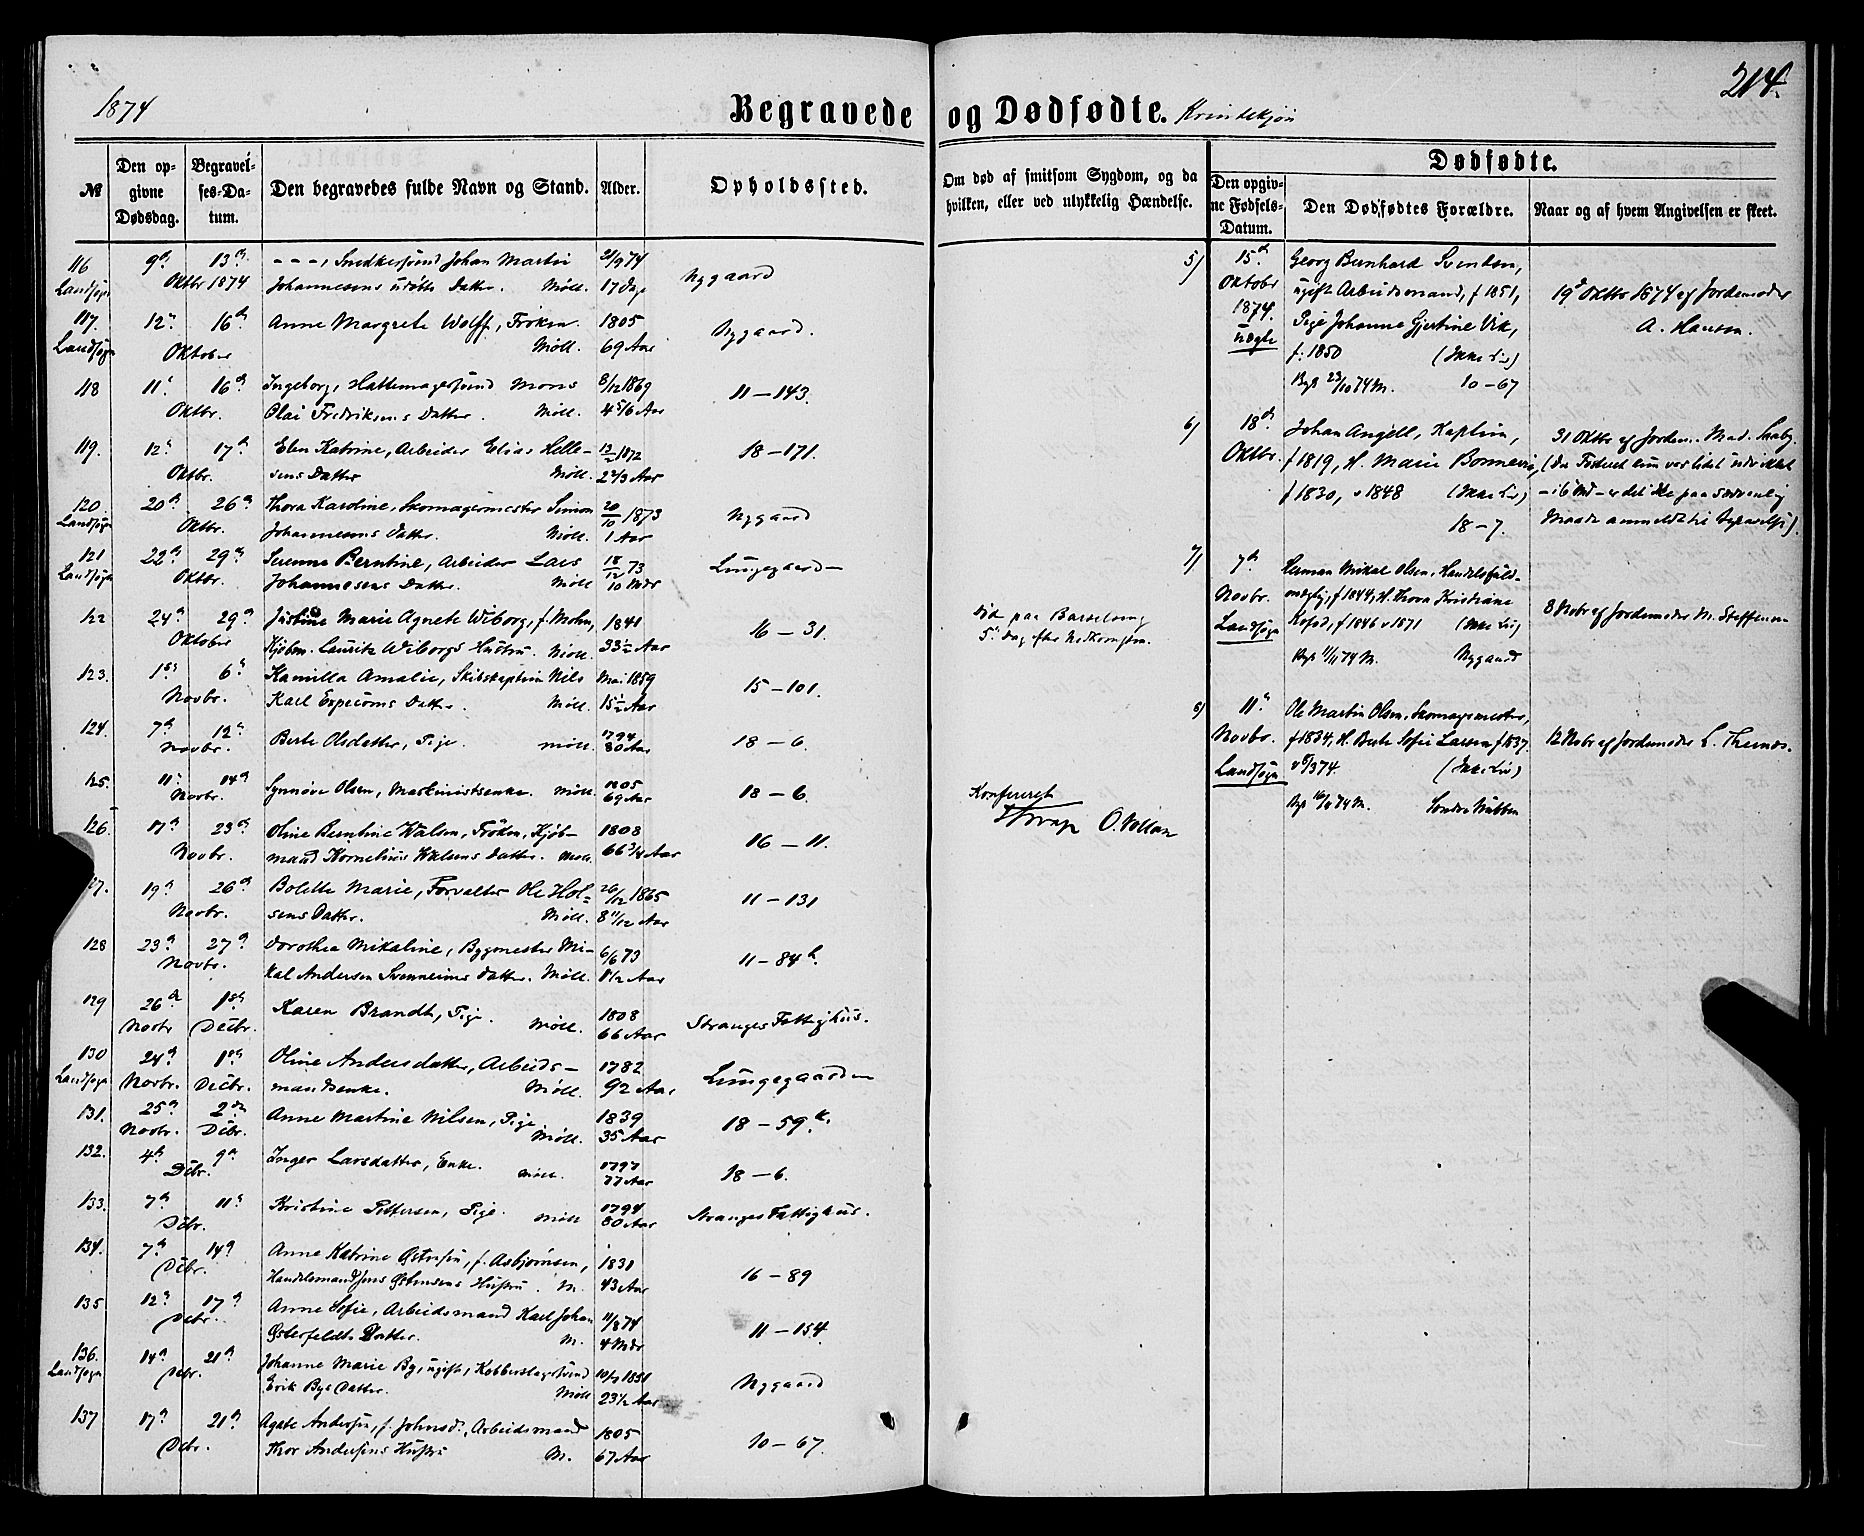 1874
Begravede og Dødfødte. Kvindekjøn
214.
№
Den opgivne Dødsdag.
Begravelses-Datum.
Den begravedes fulde Navn og Stand.
Alder.
Opholdssted.
Om død af smitsom Sygdom, og da hvilken, eller ved ulykkelig Hændelse.
Dødfødte.
Den opgivne Fødsels-Datum.
Den Dødfødtes Forældre.
Naar og af hvem Angivelsen er skeet.
116 9de 13de - - -, Snedkersvend Johan Martin 21/9 74
Landsogn Oktbr 1874 Johannesens udøbte Datter. Möll. 17 Dage Nygaard
117. 12te 16de Anne Margrete Wolff, Frøken. 1805
Landsogn Oktober Möll. 69 Aar Nygaard.
118 11te 16de Ingeborg, Hattemagersvend Mons 8/12 1869
Oktbr. Olai Fredriksens Datter. Möll. 4 5/6 Aar 11–143.
119. 12te 17de Elen Katrine, Arbeider Elias Helle- 1872
Oktbr. sens Datter Möll. 2 2/3 Aar 18–171.
120. 20de 26de Thora Karoline, Skomagermester Simon 20/10 1873
Landsogn Oktbr. Johannesens Datter. Möll. 1 Aar Nygaard
121 22de 29de Serenne Berntine, Arbeider Lars 18/12 73
Landsogn Oktbr. Johannesens Datter. Möll 10 Mdr Lungegaard–
122 24de 29de Justine Marie Agnete Wiborg, f. Mohn, 1841
Oktober Kjøbm. Lauritz Wiborgs Hustru. Möll. 33½ Aar 16–31.
Død paa Barselseng
5te Dag efter Nedkomsten.
123. 1ste 6te Kamilla Amalie, Skibskaptein Nils Mai 1859
Novbr. Karl Datter. Möll. 15½ Aar 15–101.
124. 7de 12te Berte Olsdatter, Pige. Möll. 1794
Novbr. 80 Aar 18–6.
125. 11te 14de Synnøve Olsen, Maskinistsenke. Möll. 1805
Novbr. 69 Aar 18–6.
126. 17de 23de Oline Berntine Walsen, Frøken, Kjøb- 1808
Novbr. mand Kornelius Walsens Datter. Möll. 66 3/4 Aar 16–11.
127. 19de 26de Bolette Marie, Forvalter Ole Hol- 26/12 1865
Novbr. sens Datter. Möll. 8 11/12 Aar 11–131
128 23de 27de Dorothea Mikaline, Bygmester Mi- 6/6 73
Novbr. kal Andersen Svennevins Datter. Möll. 1½ Aar 11–84b.
129 26de 1ste Karen Brandt, Pige. Möll. 1808
Novbr Decbr. 66 Aar Stranges Fattighus.
130 24de 1ste Oline Andersdatter, Arbeids- 1782
Landsogn Novbr. Decbr. mandsenke. Möll. 92 Aar Lungegaarden
131. 25de 2den Anne Martine Nilsen, Pige 1839
Novbr. Decbr. Möll. 35 Aar 18–59k.
132. 4de 9de Inger Larsdatter, Enke. Möll. 1797
Decbr. 77 Aar 18–6.
133. 7de 11te Kristine Pettersen, Pige. Möll 1794
Decbr. 80 Aar Stranges Fattighus.
134. 7de 14de Anne Katrine Østensen, f. Asbjørnsen, 1831
Decbr. Handelsmand Jens Østensens Hustru. M. 43 Aar 16–89
135 12te 17de Anne Sofie, Arbeidsmand Karl Johan 11/8 74
Decbr. Østerfeldts Datter. M. 4 Mdr 11–154.
136. 14de 21de Johanne Marie By, ugift, Kobberslagersvend 1851
Landsogn Decbr. Erik Bys Datter. Möll 23½ Aar Nygaard
137 17de 21de Agate Andersen, f. Johnsd., Arbeidsmand 1805
Decbr. Thor Andersens Hustru M. 67 Aar 10–67.
Konfereret
O. Vollan
5) 15de Georg Bernhard Svendsen,
Oktober ugift Arbeidsmand, f 1851,
1874. Pige Johanne Gjertine Vik,
uægte f. 1850 (Ikke Liv)
Bgr 23/10 74 M. 10–67
19de Oktbr 1874 af Jordemoder
A. Hansen.
6) 18de Johan Angell, Kaptein,
Oktbr. f 1819, H. Marie Bonnevie,
f 1830, v 1848 (Ikke Liv)
18–7.
31 Oktbr af Jordem. Mad. Saaby.
(Da Fosteret kun var lidet udviklet
– i 6 Md – er det ikke paa sædvanlig
Maade anmeldt til Begravelse).
7) 7de Herman Mikal Olsen, Handelsfuld-
Novbr. mægtig, f 1844, H. Thora Kristiane
Landsogn f 1846 v 1871 (Ikke Liv)
Bgr 11/11 74 M. Nygaard
8 Novbr af Jordemoder M. Steffensen
8) 11te Ole Martin Olsen, Skomagermester,
Novbr. f 1834, H. Berte Sofie Larsen f 1837.
Landsogn (Ikke Liv)
Bgr 16/11 74 M. Søndre Nubben
12 Novbr af Jordemoder L. Thenæs.